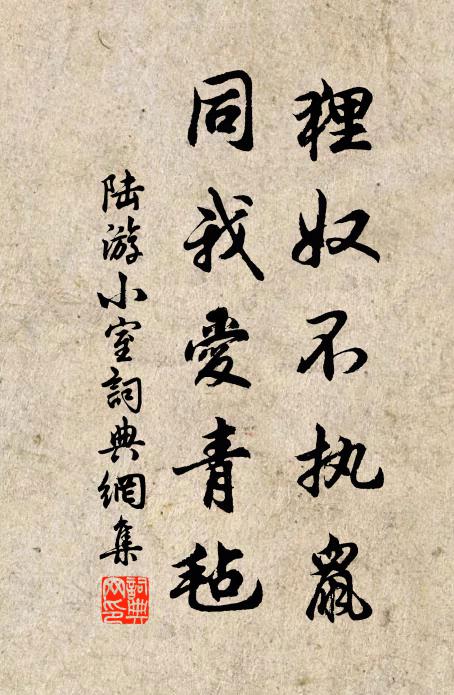 狸奴不执鼠
同我愛青毡
陆游小室詞典網集
詞典網印